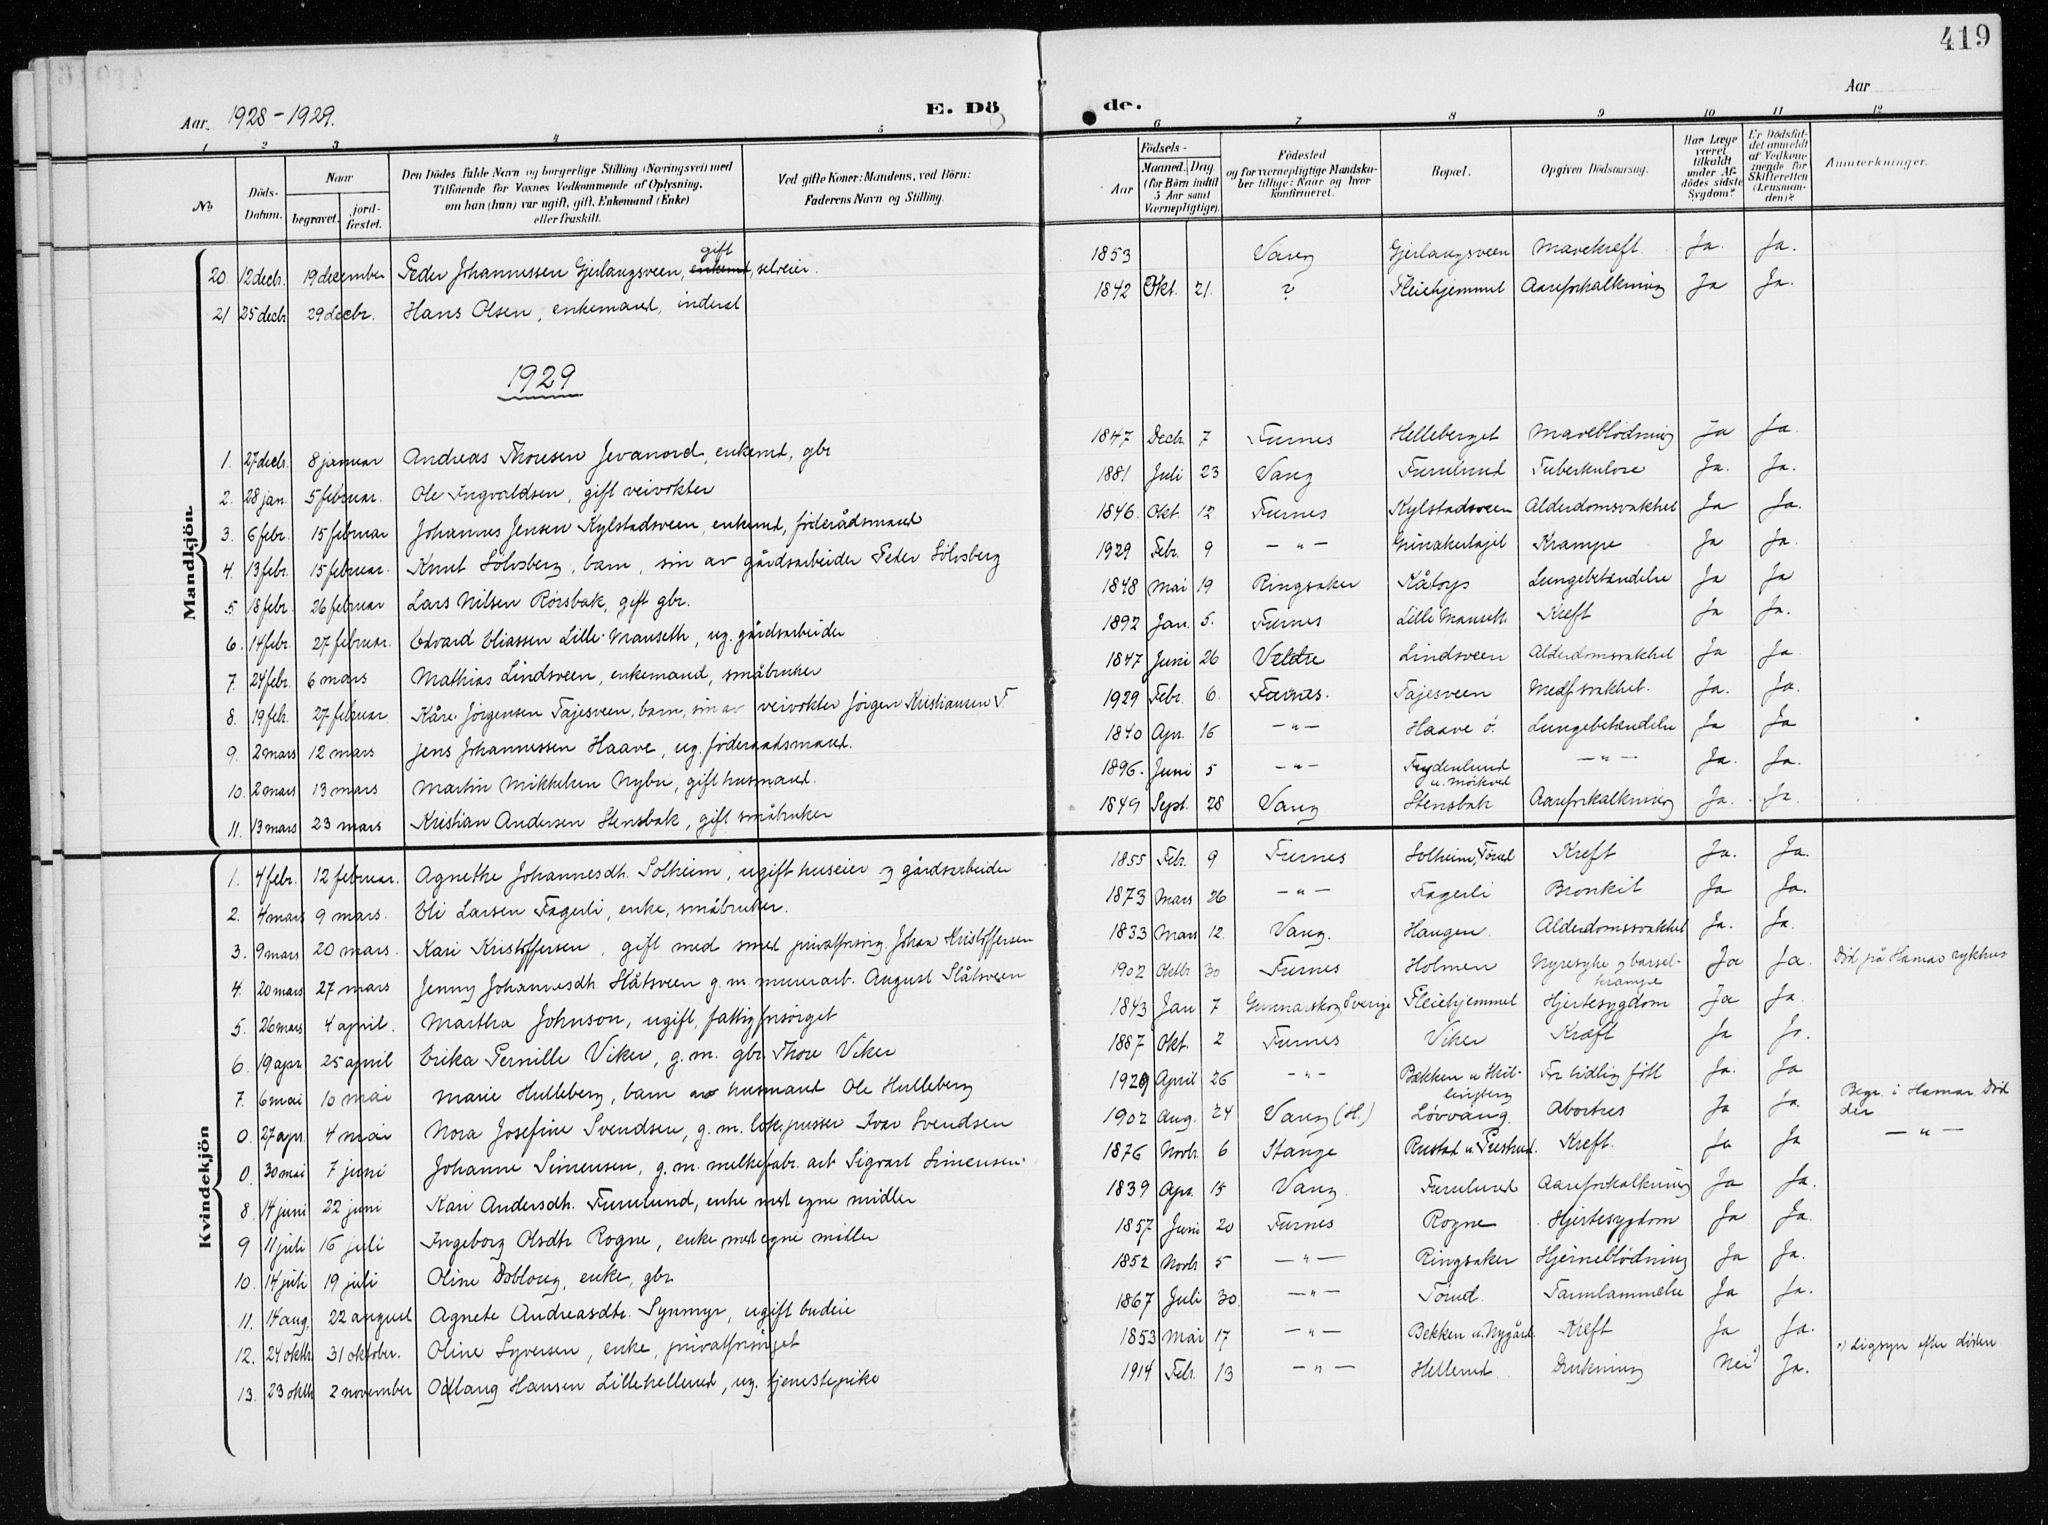 419
Aar. 1928-1929.
E. Dö
de.
Aar
1 2 3 4 5 6 7 8 9 10 11 12
No
Döds-Datum.
Naar
begravet. jord-fæstet.
Den Dödes fulde Navn og borgerlige Stilling (Næringsvei) med
Tilföiende for Voxnes Vedkommende af Oplysning,
om han (hun) var ugift, gift, Enkemand (Enke)
eller fraskilt.
Ved gifte Koner: Mandens, ved Börn:
Faderens Navn og Stilling.
Födsels-
Aar
Maaned. Dag
(for Börn indtil
5 Aar samt
Værnepligtige).
Födested
og for værnepligtige Mandska-
ber tillige: Naar og hvor
konfirmeret.
Bopæl.
Opgiven Dödsaarsag.
Har Læge
været
tilkaldt
under Af-
dödes sidste
Sygdom?
Er Dödsfal-
det anmeldt
af Vedkom-
mende for
Skifteretten
(Lensman-
den)?
Anmærkninger.
Mandkjön
20. 12 decbr. 19 december Peder Johannessen Gjerlangsveen, gift enkemd, selveier. 1853 Vang Gjerlangsveen Mavekreft. Ja. Ja.
21 25 decbr 29 decbr. Hans Olsen, enkemand, inderst 1842 Okt. 21. ? Pleiehjemmet Aareforkalkning Ja Ja.
1929
1. 27 decbr. 8 januar Andreas Thoresen Jevanord, enkemd, gbr 1847 Decbr. 7 Furnes Helleberget Maveblødning Ja Ja.
2. 28 jan. 5 februar. Ole Ingvaldsen, gift veivokter 1881 Juli 23 Vang Furulund Tuberkulose Ja. Ja.
3. 6 febr. 15 februar Johannes Jensen Kylstadsveen, enkemd, føderådsmand 1846. Okt. 12 Furnes Kylstadsveen Alderdomsvakhet Ja Ja.
4. 13 febr. 15 februar. Knut Sølvsberg, barn, sin av gårdsarbeider Peder Sølvsberg 1929 Febr. 9 — " — Grinakerlajet Krampe Ja Ja.
5. 18 febr. 26 februar Lars Nilsen Rørsbak, gift gbr. 1848 Mai 19 Ringsaker Kåtorp Lungebetændelse Ja Ja
6. 14 febr. 27 februar. Edvard Eliassen Lille-Manseth, ug. gårdsarbeider 1892 Jan. 5. Furnes Lille Manseth Kreft Ja Ja.
7. 24 febr. 6 mars Mathias Lindsveen, enkemand, småbruker 1847 Juni 26 Veldre Lindsveen Alderdomsvakhet Ja Ja.
8. 19 feb. 27 februar Kåre Jørgensen Tajesveen, barn, sin av veivokter Jørgen Kristiansen T. 1929 Febr. 6. Furnes. Tajesveen Medf. svakhet. Ja. Ja.
9. 2 mars 12 mars Jens Johannessen Haave, ug. føderaadsmand. 1840 Apr. 16 — " — Haave ö. Lungebetændelse Ja Ja
10. 2 mars 13 mars Martin Mikkelsen Nybu, gift husmand. 1896. Juni 5 — " — Frydenlund u. Mörkved — " — Ja. Ja.
11. 13 mars 23 mars Kristian Andersen Stensbak, gift småbruker 1849 Sept. 28 Vang Stensbak Aareforkalkning Ja. Ja.
Kvindekjön
1. 4 febr. 12 februar. Agnethe Johannesdtr. Solheim, ugift huseier og gårdsarbeider 1855 Febr. 9 Furnes Solheim, Torud Kreft Ja. Ja.
2. 4 mars 9 mars. Eli Larsen Fagerli, enke, småbruker. 1873 Mars 26 — " — Fagerli Bronkit Ja Ja.
3. 9 mars 20 mars. Kari Kristoffersen, gift med smed privatforsørg. Johan Kristoffersen 1833 Mars 12. Vang. Haugen. Alderdomssvakhet Ja. Ja.
4. 20 mars 27 mars Jenny Johannesdtr. Slåtsveen g.m. murerarb. August Slåtsveen 1902 Oktbr 30 Furnes Holmen Nyresyke og barsel-krampe Ja Ja. Død på Hamar sykhus
5. 26 mars 4 april. Martha Johnson, ugift, fattigforsørget 1843 Jan 7 Gunnarskog Sverige Pleiehjemmet Hjertesygdom Ja Ja.
6. 19 apr 25 april Erika Pernille Viker, g.m. gbr. Thore Viker 1887 Okt. 2 Furnes Viker Kræft Ja Ja.
7. 6 mai 10 mai Marie Hulleberg, barn av husmand Ole Hulleberg 1929 April 26 — " — Bækken u Skil- For tidlig født Ja. Ja
0. 27 apr. 4 mai Nora Josefine Svendsen, g.m. lok.pusser Ivar Svendsen 1902 Aug. 24 Vang (H.) Løvvang. Abortus Ja Ja. Begr. i Hamar. Død der
0. 30 mai 7 juni Johanne Simensen, g.m. melkefabr. arb Sigvart Simensen. 1876 Novbr. 6 Stange Rustad u. Prestrud. Kreft. Ja Ja — " —
8. 14 juni 22 juni Kari Andersdtr. Furulund, enke med egne midler 1839 Apr. 15 Vang. Furulund Aareforkalkning Ja Ja.
9 11 juli 16 juli Ingeborg Olsdtr Rogne, enke med egne midler 1857 Juni 20 Furnes Rogne Hjertesygdom Ja Ja.
10. 14 juli 19 juli Oline Dobloug, enke, gbr 1852 Novbr. 5 — " — Ringsaker Hjerneblødning Ja Ja.
11. 14 aug. 22 august Agnete Andreasdtr. Synmyr, ugift budeie 1867 Juli 30. — " — Torud. Tarmlammelse Ja Ja.
12. 24 oktbr 31 oktober. Oline Syversen, enke, privatforsørget 1853 Mai 17 — " — Bekken u. Nygård. Kreft Ja Ja.
13. 23 oktbr 2 november Odlaug Hansen Lillehellerud, ug. tjenestepike 1914 Febr. 13 — " — Hellerud Drukning Nei ") Ja. ") Ligsyn efter døden